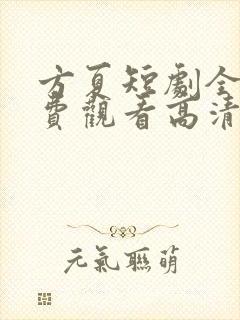 方夏短劇全
費觀看高清
元氣聯萌